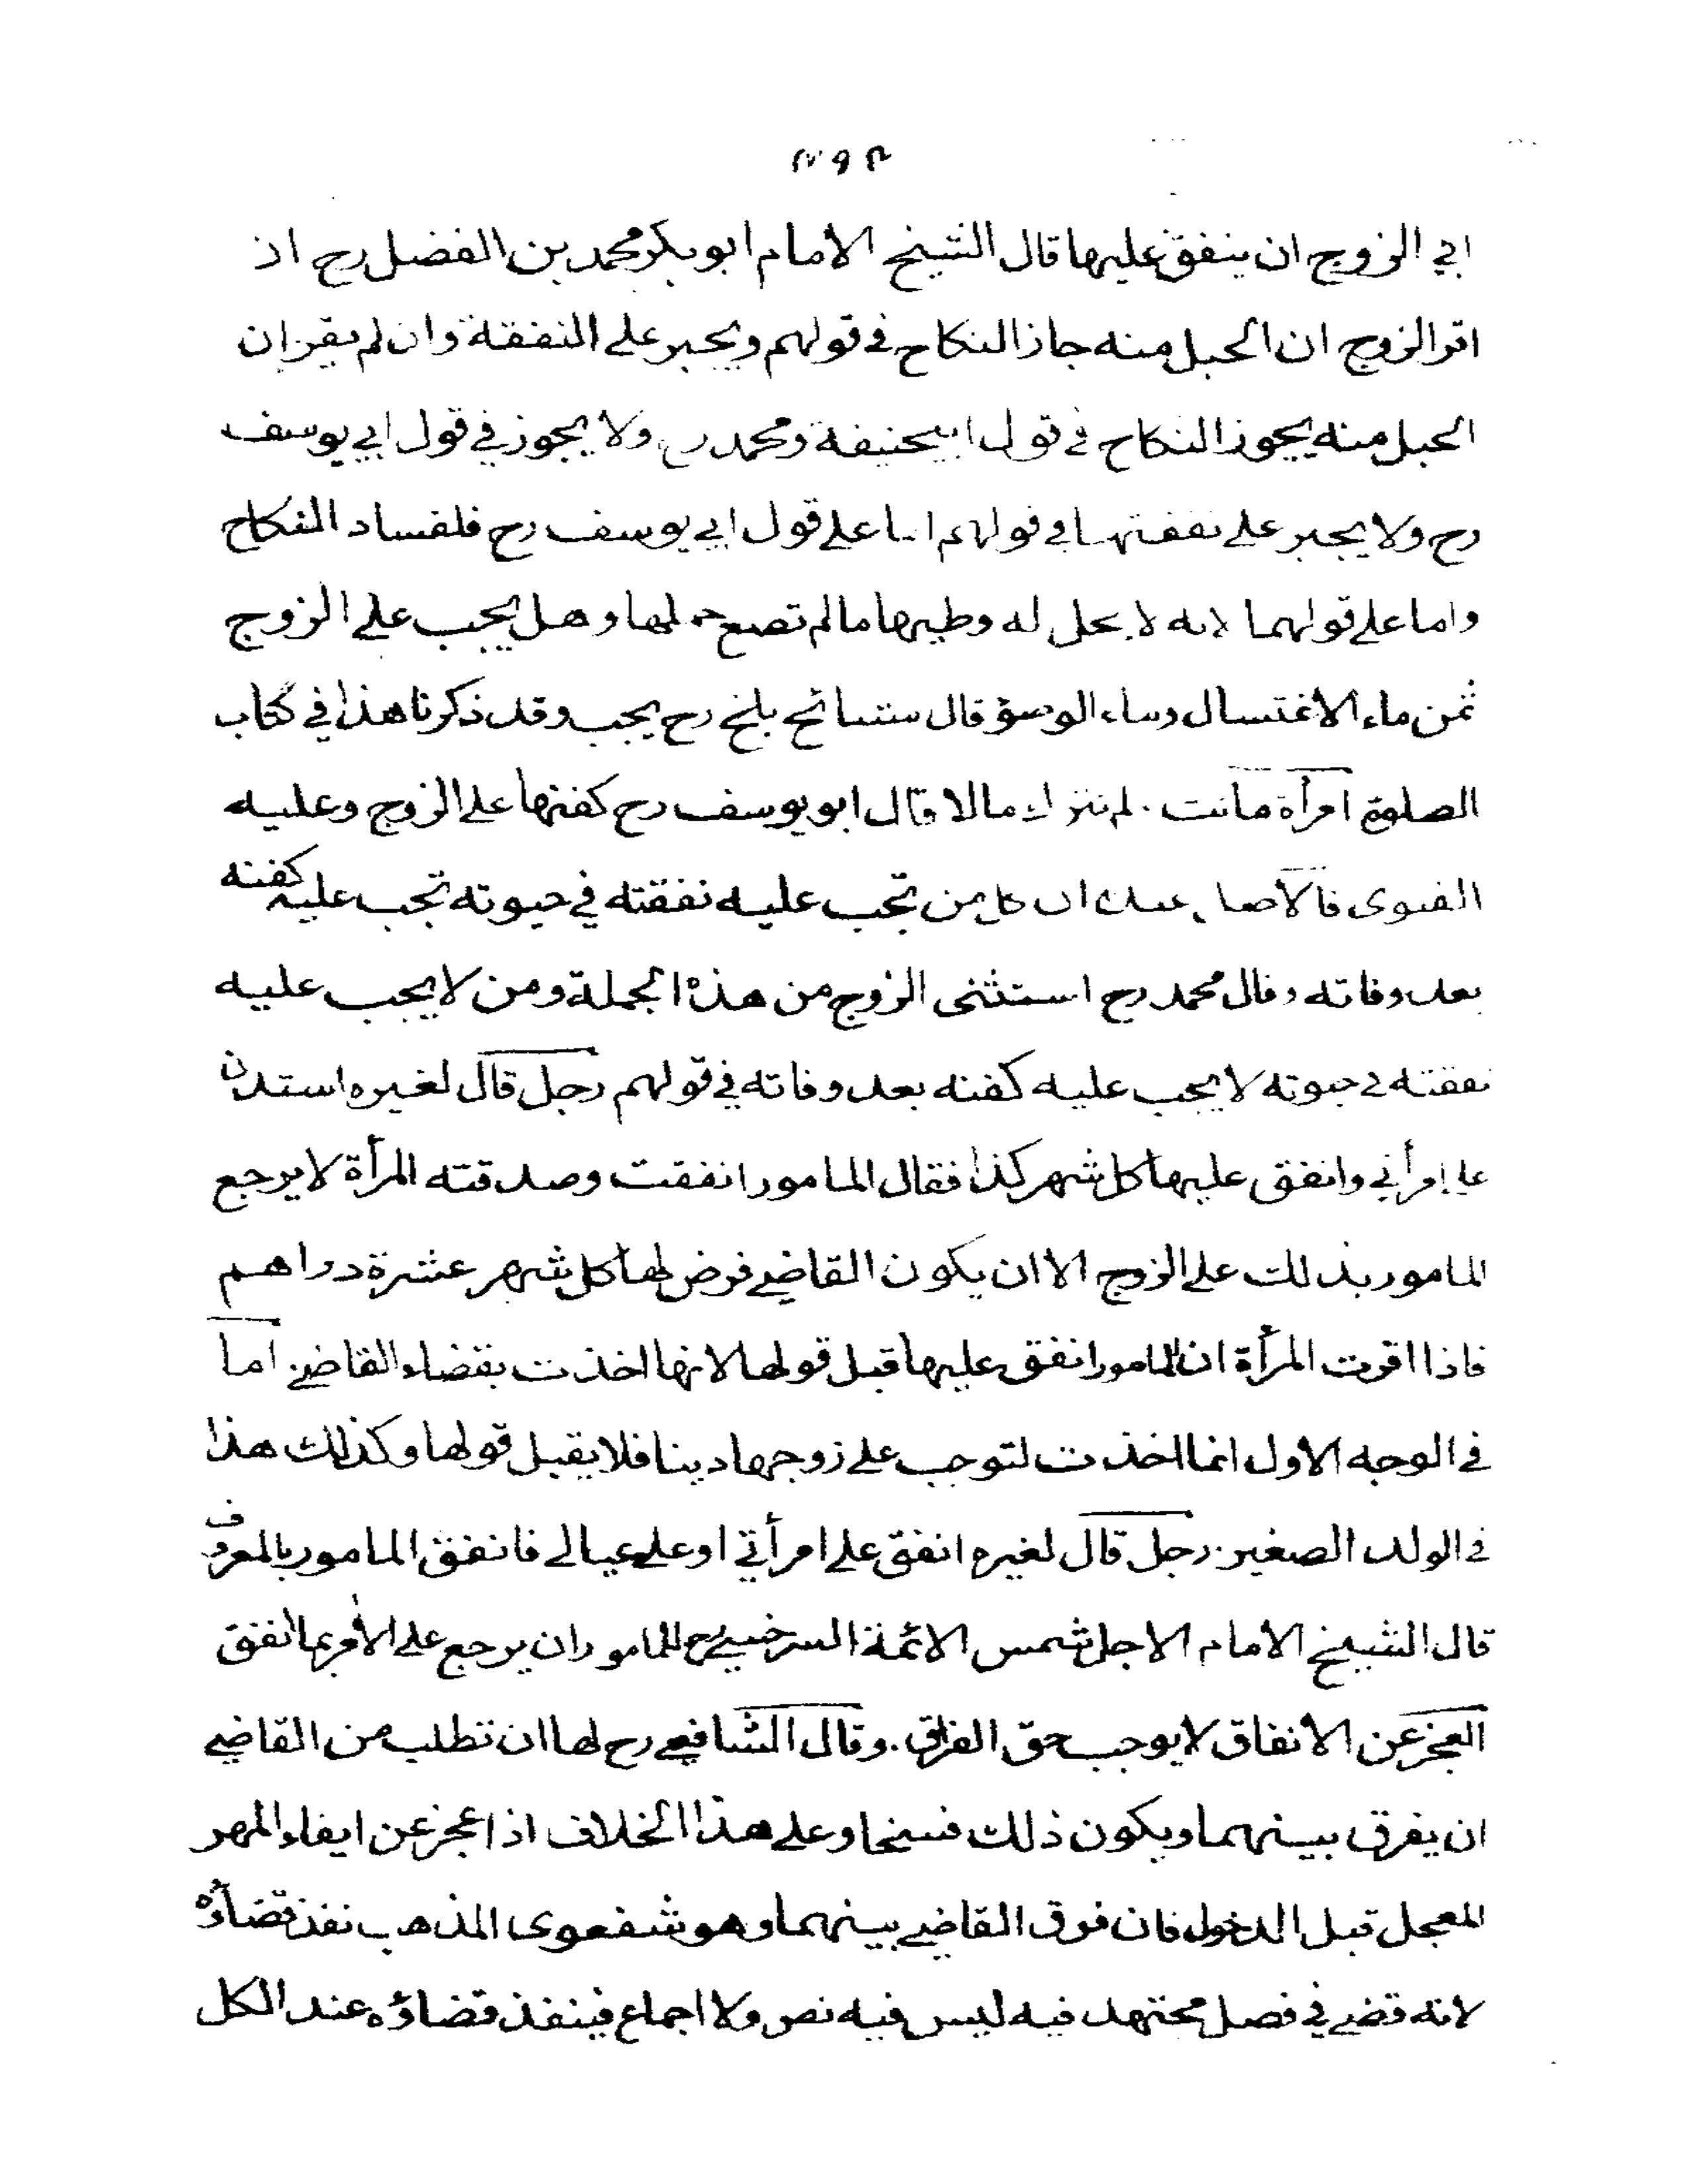 ابي الزوج ان ينفق عليها قال الشيخ الامام ابو بكر محمد بن الفضل رح ان
اقر الزوج ان الحبل منه جاز النكاح في قولهم ويجبر على النفقة وان لم يقر ان
الحبل منه يجوز النكاح في قول ابيحنيفة ومحمد رح ولا يجوز في قول ابي يوسف
رح ولا يجبر على نفقتها في قولهم اما على قول ابي يوسف رح فلفساد النكاح
واما على قولهما لانه لا يحل له وطيها ما لم تضع حملها وهل يجب على الزوج
ثمن ماء الاغتسال وماء الوضوء قال مشائخ بلخ رح يجب وقد ذكرنا هذا في كتاب
الصلوة امرأة ماتت ولم تترك مالا قال ابو يوسف رح كفنها على الزوج وعليه
الفتوى فالاصل عنده ان كل من تجب عليه نفقته في حيوته تجب عليه كفنه
بعد وفاته وقال محمد رح استثنى الزوج من هذه الجملة ومن لا يجب عليه
نفقته في حيوته لا يجب عليه كفنه بعد وفاته في قولهم رجل قال لغيره استدن
على امرأتي وانفق عليها كل شهر كذا فقال المامور انفقت وصدقته المرأة لا يرجع
المامور بذلك على الزوج الا ان يكون القاضي فرض لها كل شهر عشرة دراهم
فاذا اقرت المرأة ان المامور انفق عليها قبل قولها لانها اخذت بقضاء القاضي اما
في الوجه الاول انما اخذت لتوجب على زوجها دينا فلا يقبل قولها وكذلك هذا
في الولد الصغير رجل قال لغيره انفق على امرأتي او على عيالي فانفق المامور بالمعروف
قال الشيخ الامام الاجل شمس الائمة السرخسي رح للمامور ان يرجع على الآمر بما انفق
العجز عن الانفاق لا يوجب حق الفراق . وقال الشافعي رح لها ان تطلب من القاضي
ان يفرق بينهما ويكون ذلك فسخا وعلى هذا الخلاف اذا عجز عن ايفاء المهر
المعجل قبل الدخول فان فرق القاضي بينهما وهو شفعوى المذهب نفذ قضاؤه
لانه قضى في فصل مجتهد فيه ليس فيه نص ولا اجماع فينفذ قضاؤه عند الكل